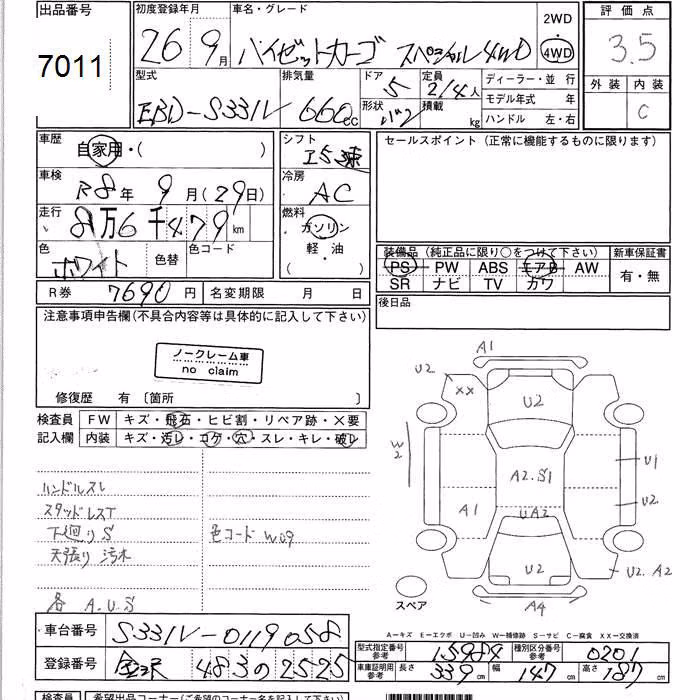 出品番号 7011
初度登録年月 26年 9月
車名・グレード ハイゼットカーゴ スペシャル 4WD
2WD・4WD
評価点 3.5
外装 内装 C
型式 EBD-S331V
排気量 660cc
ドア 5
形状 バン
定員 2/4人
積載 kg
ディーラー・並行
モデル年式 年
ハンドル 左・右
車歴 自家用・( )
車検 R8年 9月(29日)
走行 8万6千479km
色 ホワイト 色替 色コード
シフト I5速
冷房 AC
燃料 ガソリン 軽・油 ( )
セールスポイント(正常に機能するものに限ります)
装備品(純正品に限り○をつけて下さい)
PS PW ABS エアB AW
SR ナビ TV カワ
新車保証書 有・無
R券 7690円 名変期限 月 日
後日品
注意事項申告欄(不具合内容等は具体的に記入して下さい)
ノークレーム車
no claim
修復歴 有 〔箇所 〕
検査員記入欄
FW キズ・飛石・ヒビ割・リペア跡・×要
内装 キズ・汚レ・コゲ・穴・スレ・キレ・破レ
ハンドルスレ
スタッドレスT
下廻りS 色コード W09
天張り 汚木
各 A.U.S
A1
U2
XX
U2
W2
A2.S1
U1
A1
U2
UA2
U2
U2.A2
A4
スペア
A−キズ E−エクボ U−凹み W−補修跡 S−サビ C−腐食 XX−交換済
車台番号 S331V-0119058
登録番号 金沢 483 の 25-25
型式指定番号 参考 15984 種別区分番号 参考 0201
車庫証明用 参考 長さ 339cm 幅 147cm 高さ 187cm
検査員 希望出品コーナー(ご希望のコーナー名を記入して下さい)